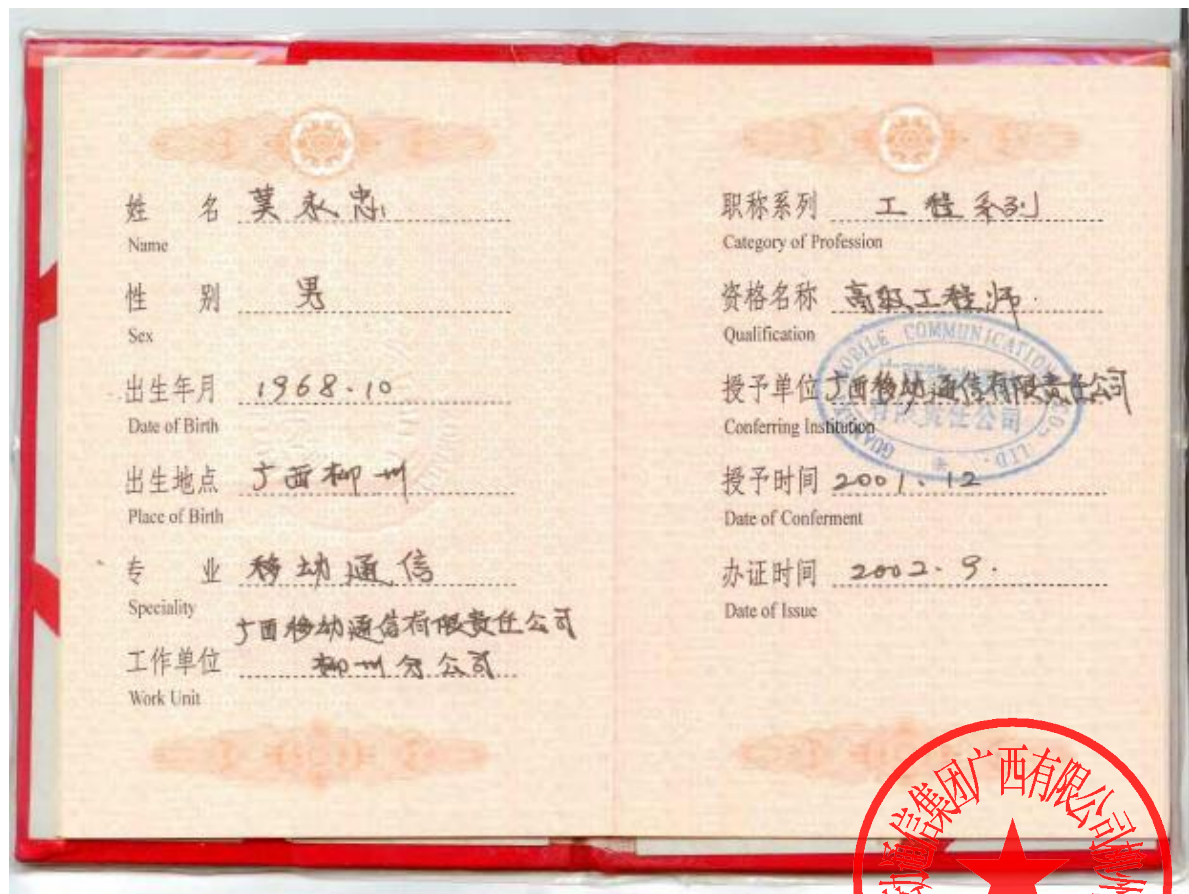 姓 名 莫永忠
Name
性 别 男
Sex
出生年月 1968.10
Date of Birth
出生地点 广西柳州
Place of Birth
专 业 移动通信
Speciality
广西移动通信有限责任公司
工作单位 柳州分公司
Work Unit
职称系列 工程系列
Category of Profession
资格名称 高级工程师.
Qualification
MOBILE COMMUNICATION
授予单位 广西移动通信有限责任公司
有限责任公司
Conferring Institution
CO., LTD.
授予时间 2001.12
Date of Conferment
办证时间 2002.9.
Date of Issue
通信集团广西有限公司柳州